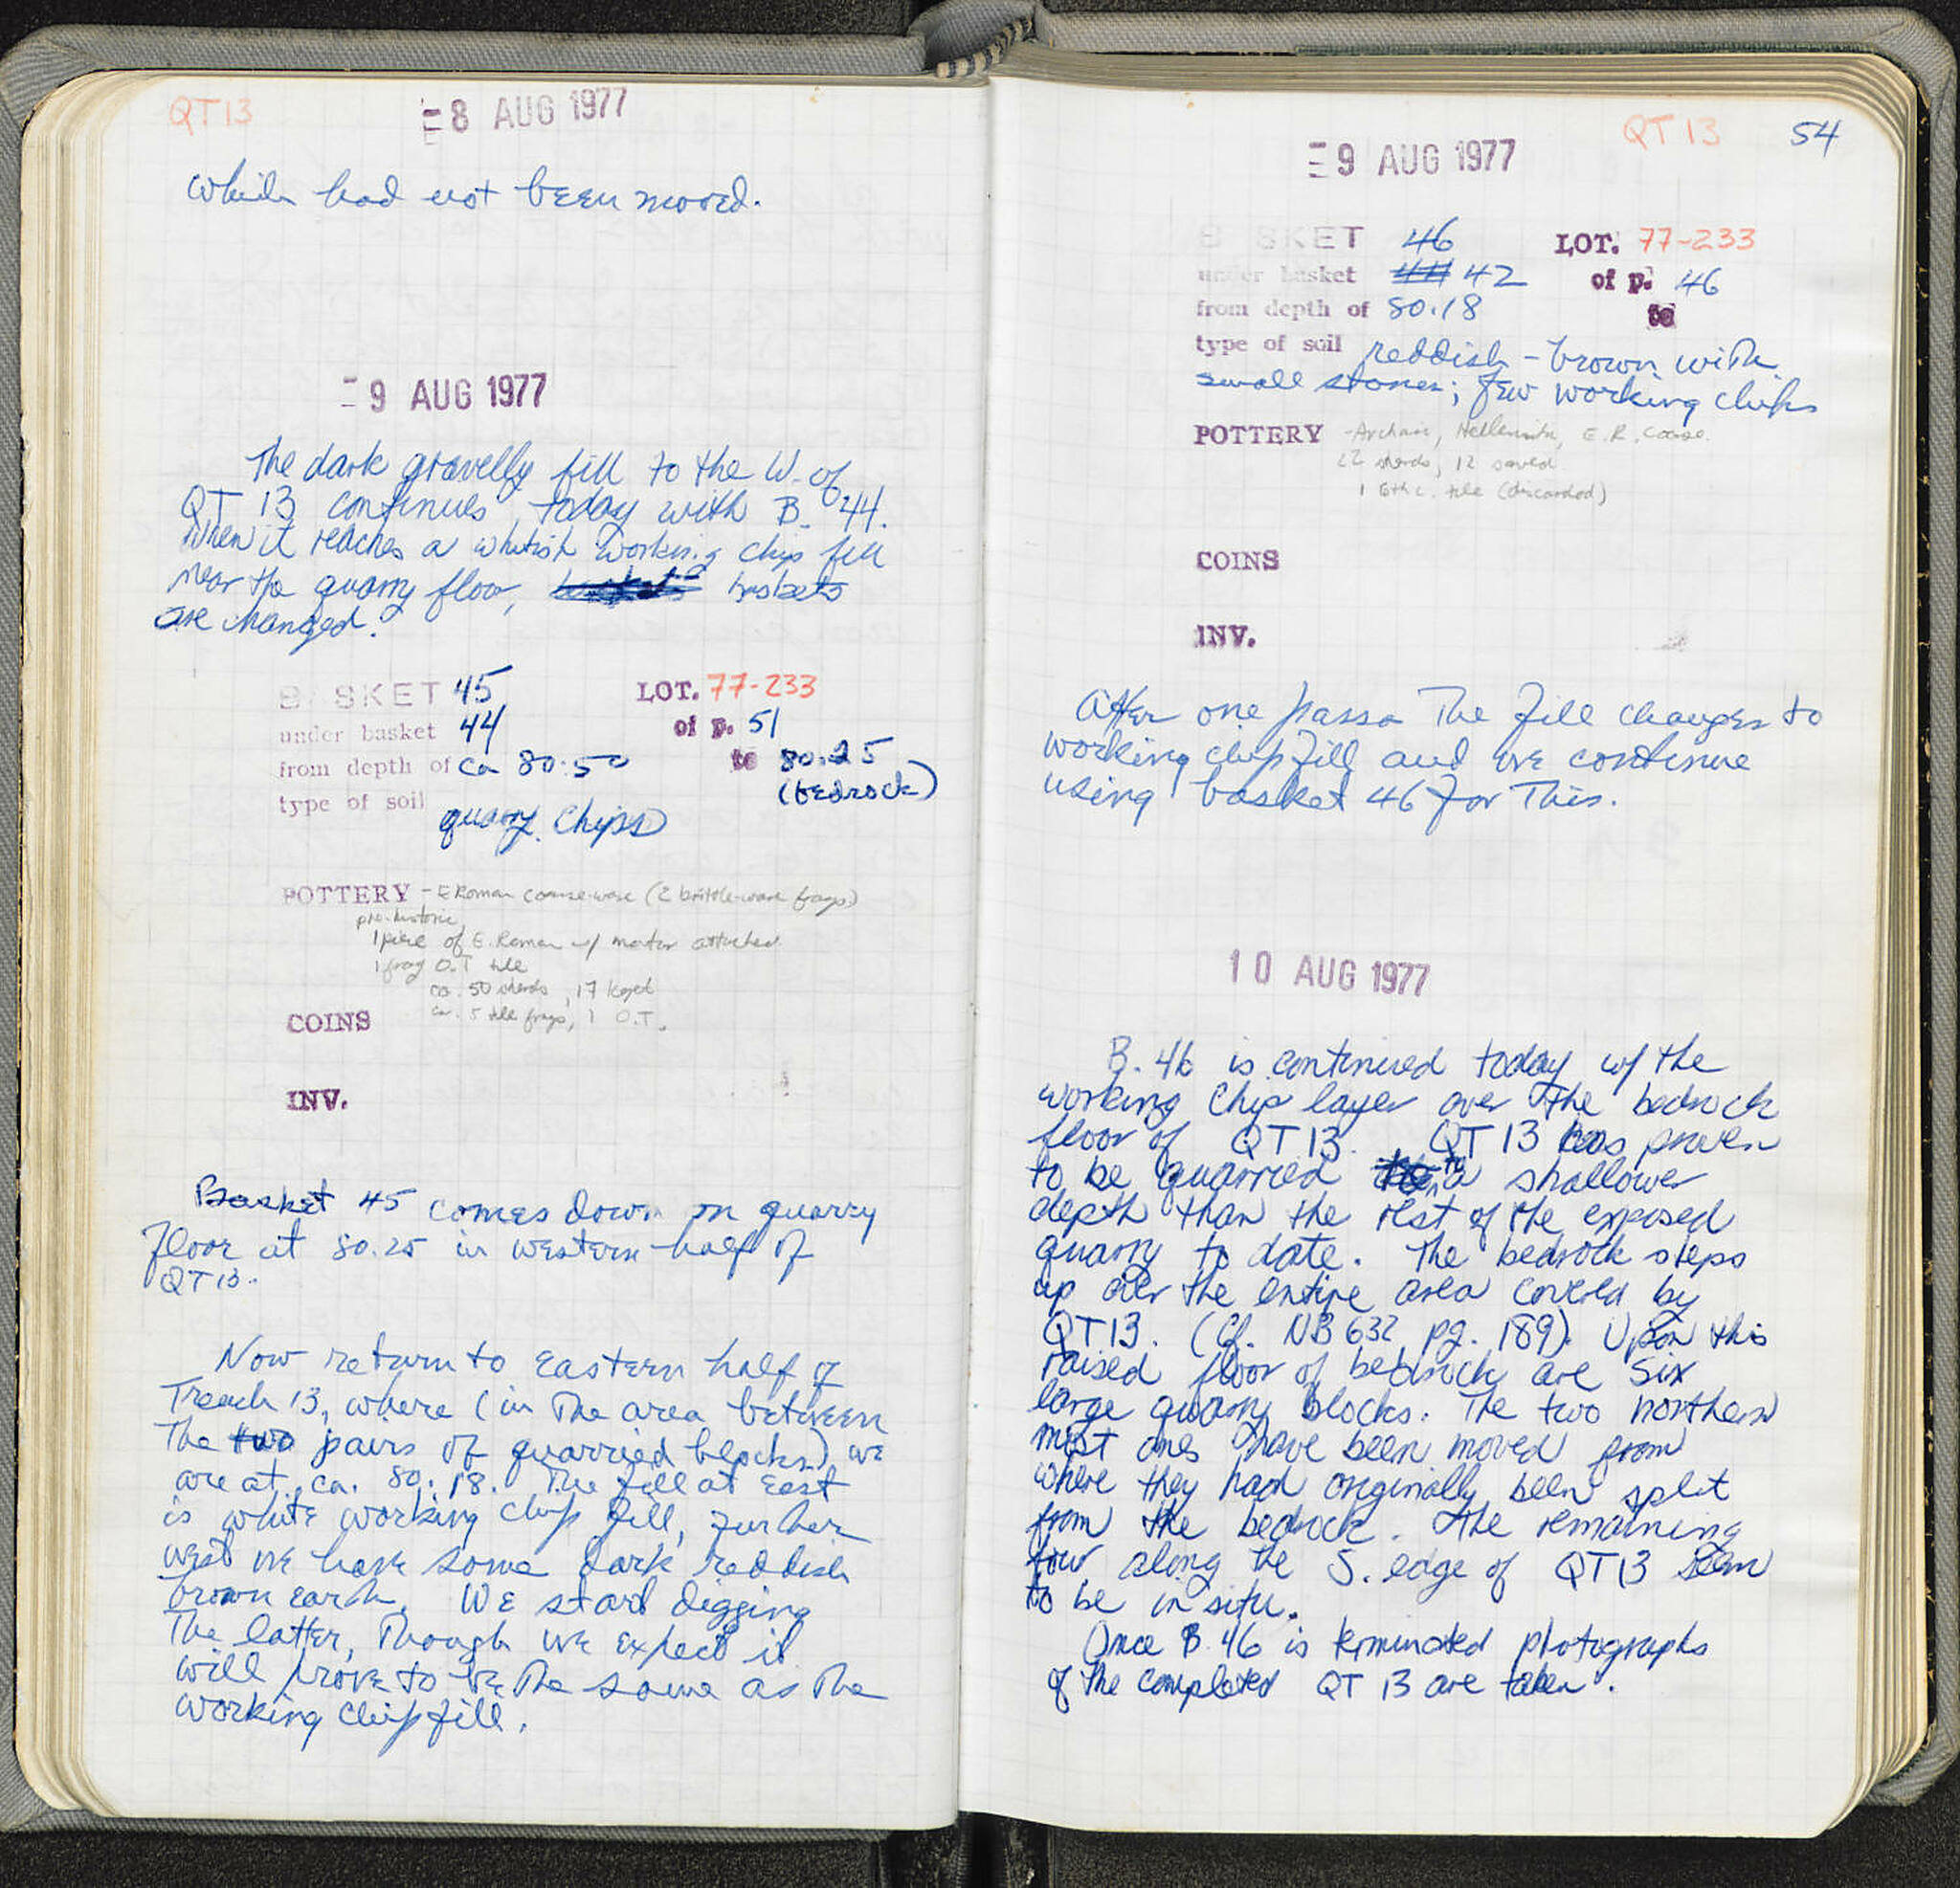 QT 13
8 AUG 1977
which had not been moved.
9 AUG 1977
The dark gravelly fill to the W. of
QT 13 continues today with B. 44.
When it reaches a whitish working chip fill
near the quarry floor, baskets
are changed.
BASKET 45 LOT. 77-233
under basket 44 of p. 51
from depth of ca 80.50 to 80.25
(bedrock)
type of soil
quarry chips
POTTERY - E Roman coarse-ware (2 brittle-ware frags)
pre-historic
1 piece of E. Roman w/ mortar attached
1 frag O.T tile
ca. 50 sherds, 17 kept
ca. 5 tile frags, 1 O.T.
COINS
INV.
Basket 45 comes down on quarry
floor at 80.25 in western half of
QT 13.
Now return to Eastern half of
Trench 13, where (in The area between
The two pairs of quarried blocks) we
are at ca. 80.18. The fill at East
is white working chip fill, further
west we have some dark reddish
brown earth. We start digging
The latter, Though we expect it
will prove to be The same as The
working chip fill.
QT 13 54
9 AUG 1977
BASKET 46 LOT. 77-233
under basket 44 42 of p. 46
from depth of 80.18 to
type of soil reddish-brown with
small stones; few working chips
POTTERY - Archaic, Hellenistic, E.R. Coarse.
22 sherds, 12 saved
1 6th c. tile (discarded)
COINS
INV.
After one passo The fill changes to
working chip fill and we continue
using basket 46 for This.
10 AUG 1977
B. 46 is continued today w/ the
working chip layer over the bedrock
floor of QT 13. QT 13 has proven
to be quarried to a shallower
depth than the rest of the exposed
quarry to date. The bedrock steps
up over the entire area covered by
QT 13. (Cf. NB 632 pg. 189). Upon this
raised floor of bedrock are six
large quarry blocks. The two northern
most ones have been moved from
where they had originally been split
from the bedrock. The remaining
four along the S. edge of QT 13 seem
to be in situ.
Once B. 46 is terminated photographs
of the completed QT 13 are taken.